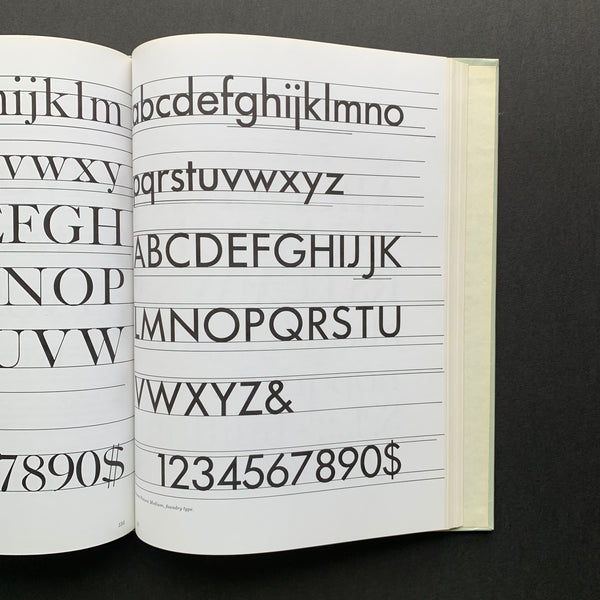 hijklm
vwxy
EFGH
NOP
UVW
7890$
abcdefghijklmno
pqrstuvwxyz
ABCDEFGHIJJK
LMNOPQRSTU
VWXYZ&
1234567890$
Futura Medium, foundry type.